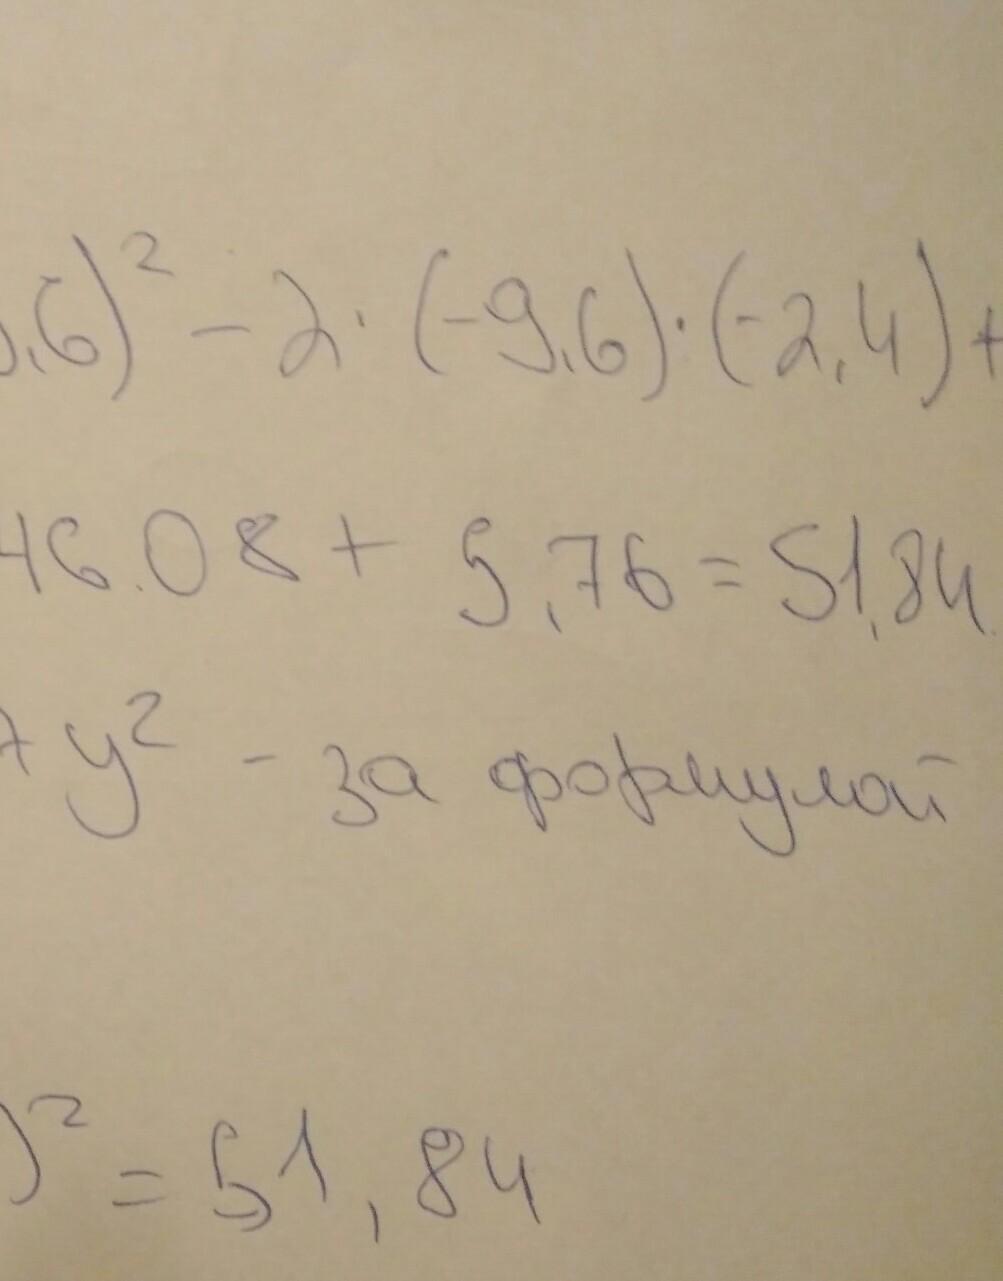 ,6)² - 2 · (-9,6) · (-2,4) +
46.08 + 5,76 = 51,84.
y² - за формулой
)² = 51,84